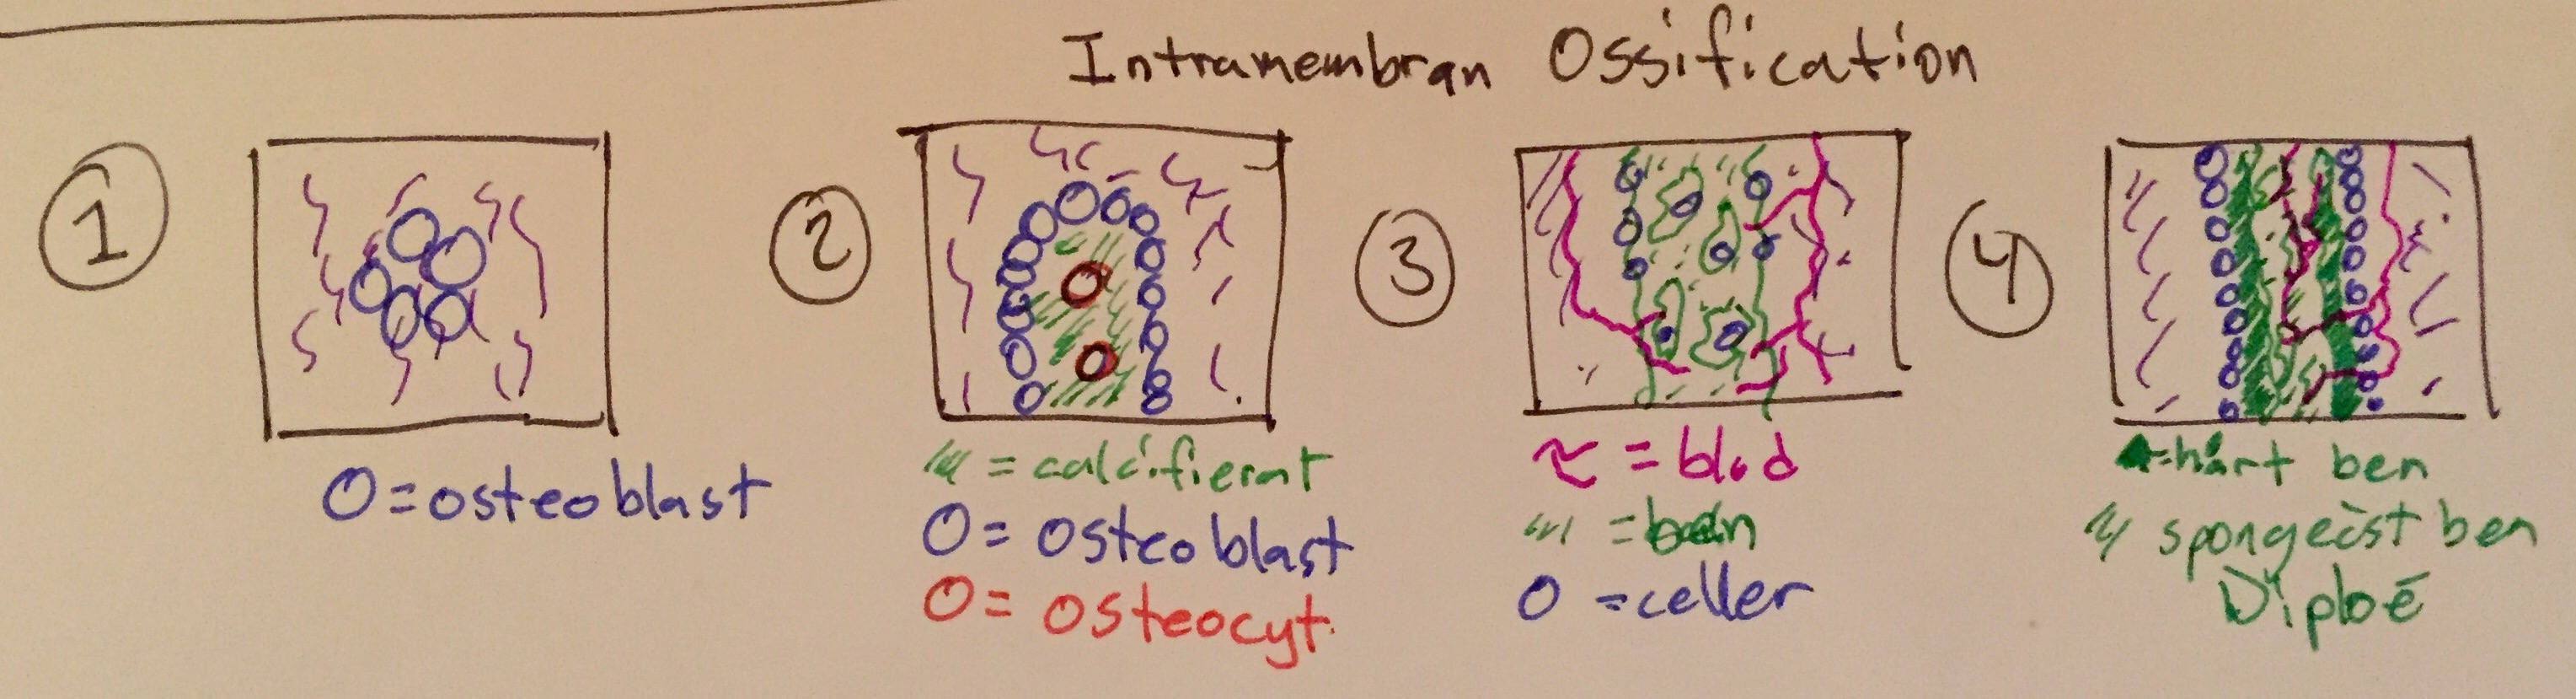 Intramembran Ossification
1
O=osteoblast
2
= calcifierat
O= osteoblast
O= osteocyt
3
= blod
= ben
O =celler
4
=hårt ben
spongeöst ben
Diploë